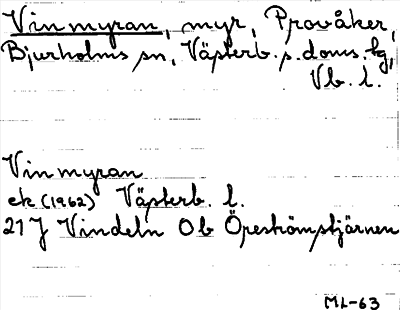 Vinmyran, myr, Provåker,
Bjurholms sn, Västerb. s. doms. hg,
Vb. l.
Vinmyran
ek (1962) Västerb. l.
21 J Vindeln 0 b Öreströmstjärnen
ML-63